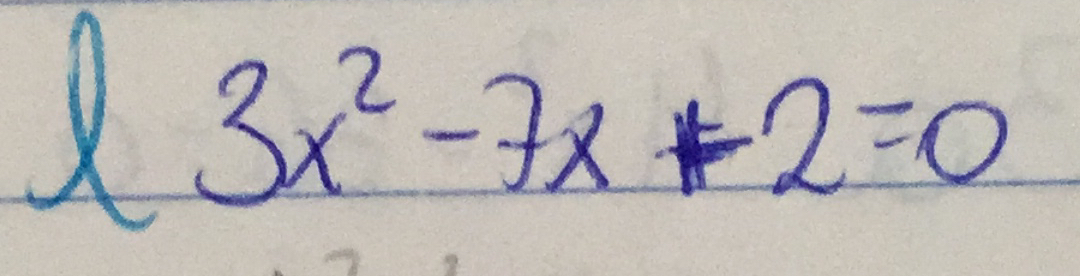 l 3x² - 7x + 2 = 0